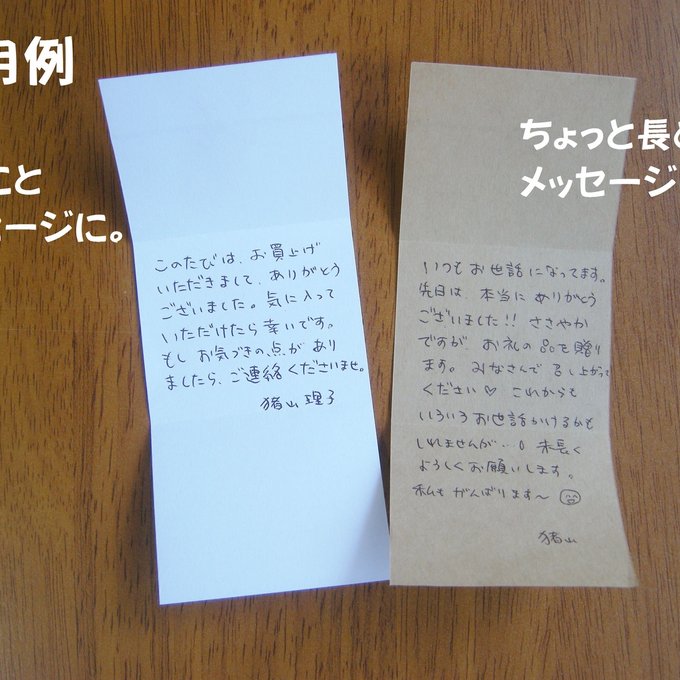 用例
こと
セージに。
ちょっと長め
メッセージ
このたびは、お買上げ
いただきまして、ありがとう
ございました。気に入って
いただけたら幸いです。
もし お気づきの点が あり
ましたら、ご連絡くださいませ。
猪山 理子
いつも お世話になってます。
先日は、本当に ありがとう
ございました!! ささやか
ですが、お礼の品を贈り
ます。みなさんで 召し上がって
ください♡ これからも
いろいろ お世話かけるかも
しれませんが、、末長く
よろしくお願いします。
私も がんばります〜
猪山